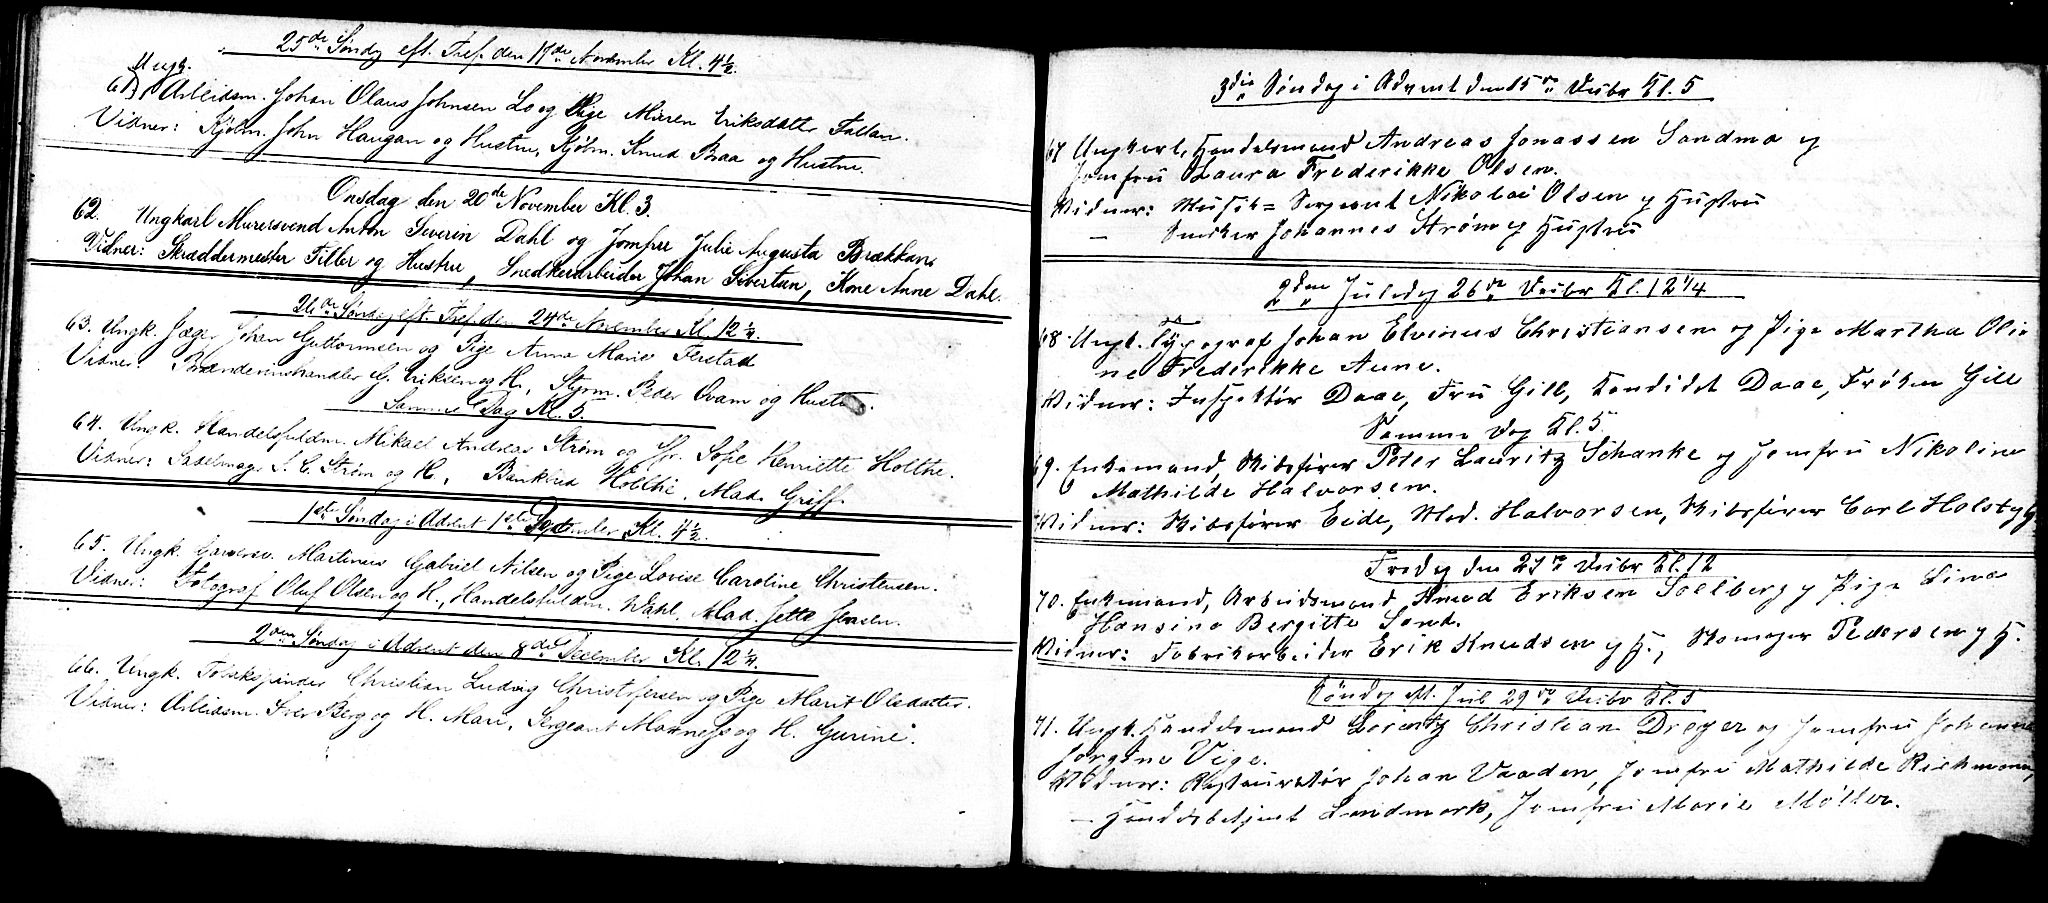 25de Søndg eft. Tref. den 17de November Kl. 4½.
Ungk.
61) Arbeidsm. Johan Olaus Johnsen Lo og Pige Maren Eriksdatter Fallan.
Vidner: Kjøbm. John Haugan og Hustru, Kjøbm. Knud Braa og Hustru.
Onsdag den 20de November Kl. 3.
62. Ungkarl Murersvend Anton Severin Dahl og Jomfru Julie Augusta Brækkan.
Vidner: Skræddermester Tiller og Hustru, Snedkerarbeider Johan Sivertsen, Kone Anne Dahl.
26de Søndag eft. Tref. den 24de November Kl. 12¼.
63. Ungk. Jæger Johan Guttormsen og Pige Anna Marie Ferstad
Vidner: Brændevinshandler G. Eriksen og H., Styrm. Peder Qvam og Hustru.
Samme Dag Kl. 5.
64. Ungk. Handelsfuldm. Mikael Andreas Strøm og Jfr. Sofie Henriette Holthe.
Vidner: Sadelmager S. C. Strøm og H., Holthe, Mad. Griff.
1ste Søndag i Advent 1ste December Kl. 4½.
65. Ungk. Garversv. Martinus Gabriel Nilsen og Pige Lovise Caroline Christensen.
Vidner: Fotograf Oluf Olsen og H., Handelsfuldm. Wahl, Mad. Jette Jensen.
2den Søndag i Advent den 8de December Kl. 12¼.
66. Ungk. Tobakspinder Christian Ludvig Christofersen og Pige Marit Olsdatter.
Vidner: Arbeidsm. Iver Berg og H. Mari, Sergeant og H. Gurine.
3die Søndag i Advent den 15de Decbr Kl. 5
67 Ungkarl, Handelsmand Andreas Jonassen Sandmo og
Jomfru Laura Frederikke Olsen.
Vidner: Musik= Sergeant Nikolai Olsen og Hustru
— Snedker Johannes Strøm og Hustru
2den Juledag 26de Decbr Kl. 12¼
68. Ungk. Typograf Johan Elvinus Christiansen og Pige Martha Olin
ne Frederikke Aune.
Vidner: Inspektør Daae, Fru Gill, Kandidat Daae, Frøken Gill
Samme Dag Kl. 5.
69. Enkemand, Skibsfører Peter Lauritz Schanke og Jomfru Nikoline
Mathilde Halvorsen.
Vidner: Skibsfører Eide, Mad. Halvorsen, Skibsfører Carl Holst og H.
Fredag den 27de Decbr Kl. 12
70. Enkemand, Arbeidsmand Knud Eriksen Solberg og Pige Lina
Hansina Bergitte Sand.
Vidner: Fabrikarbeider Erik Knudsen og H., Skomager Pedersen og H.
Søndag M. Jul 29de Decbr Kl. 5
71. Ungk. Handelsmand Lorentz Christian Dreyer og Jomfru Johanna
Jørgine Vige.
Vidner: Restauratør Johan Vaaden, Jomfru Mathilde Richmann,
— Handelsbetjent Landmark, Jomfru Marie Møller.